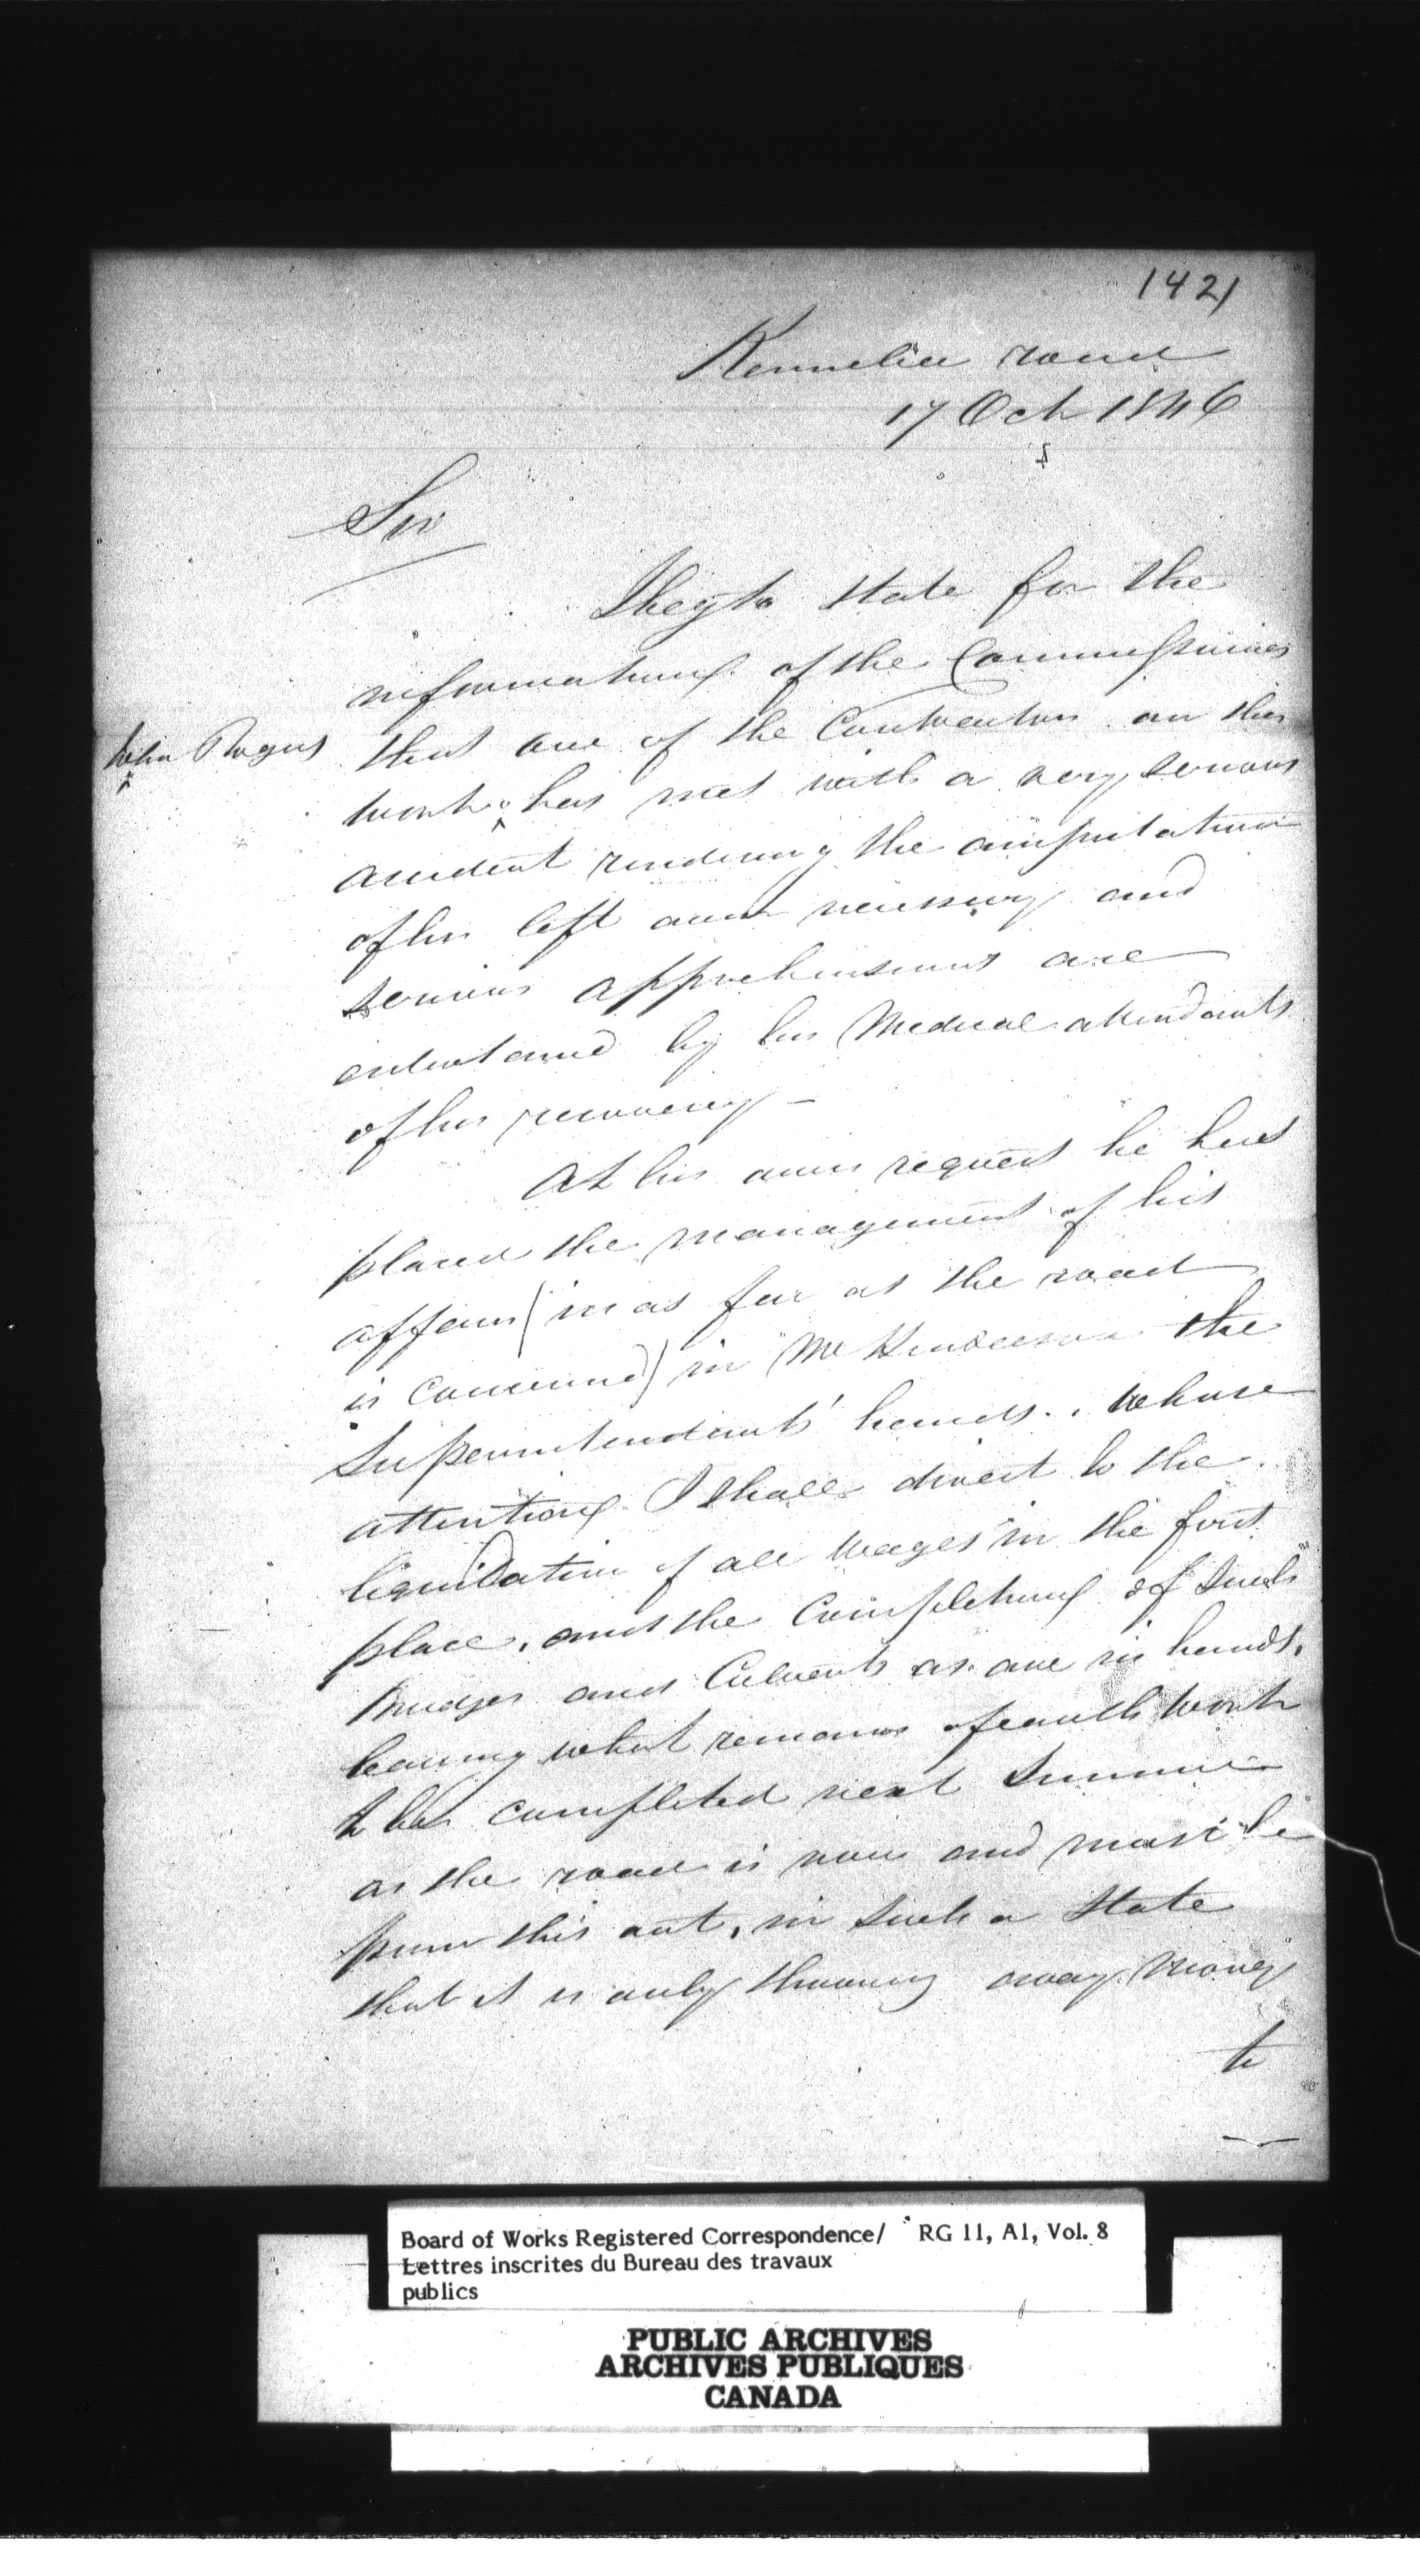 1421
Road
17 Oct 1846
Sir
I beg to state for the
information of the Commissioners
John Rogers
that one of the Contractors on this
work has met with a very serious
accident rendering the amputation
of his left arm necessary and
serious apprehensions are
entertained by his Medical attendants
of his recovery –
At his own request he has
placed the management of his
affairs (in as far as the road
is concerned) in Mr Henderson the
Superintendants' hands. whose
attention I shall direct to the
liquidation of all wages in the first
place, and the Completion of such
Bridges and Culverts as are in hands,
leaving what remains of earth work
to be completed next Summer
as the road is now and must be
from this out, in such a State
that it is only throwing away money
to
Board of Works Registered Correspondence/ RG 11, A1, Vol. 8
Lettres inscrites du Bureau des travaux
publics
PUBLIC ARCHIVES
ARCHIVES PUBLIQUES
CANADA